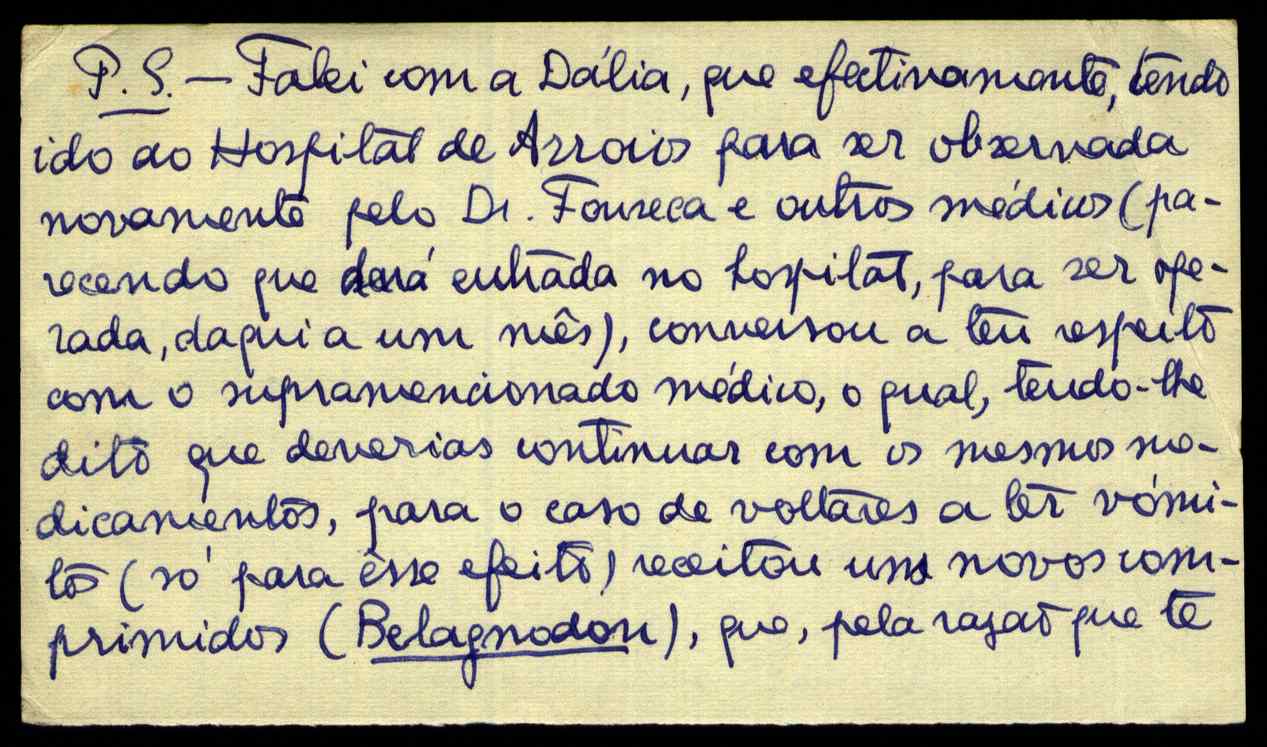 P.S. — Falei com a Dália, que efectivamente, tendo
ido ao Hospital de Arroios para ser observada
novamente pelo Dr. Fonseca e outros médicos (pa-
recendo que dará entrada no hospital, para ser ope-
rada, daqui a um mês), conversou a teu respeito
com o supramencionado médico, o qual, tendo-lhe
dito que deverias continuar com os mesmos me-
dicamentos, para o caso de voltares a ter vómi-
to (só para êsse efeito) receitou uns novos com-
primidos (Belagnodon), que, pela razaõ que te